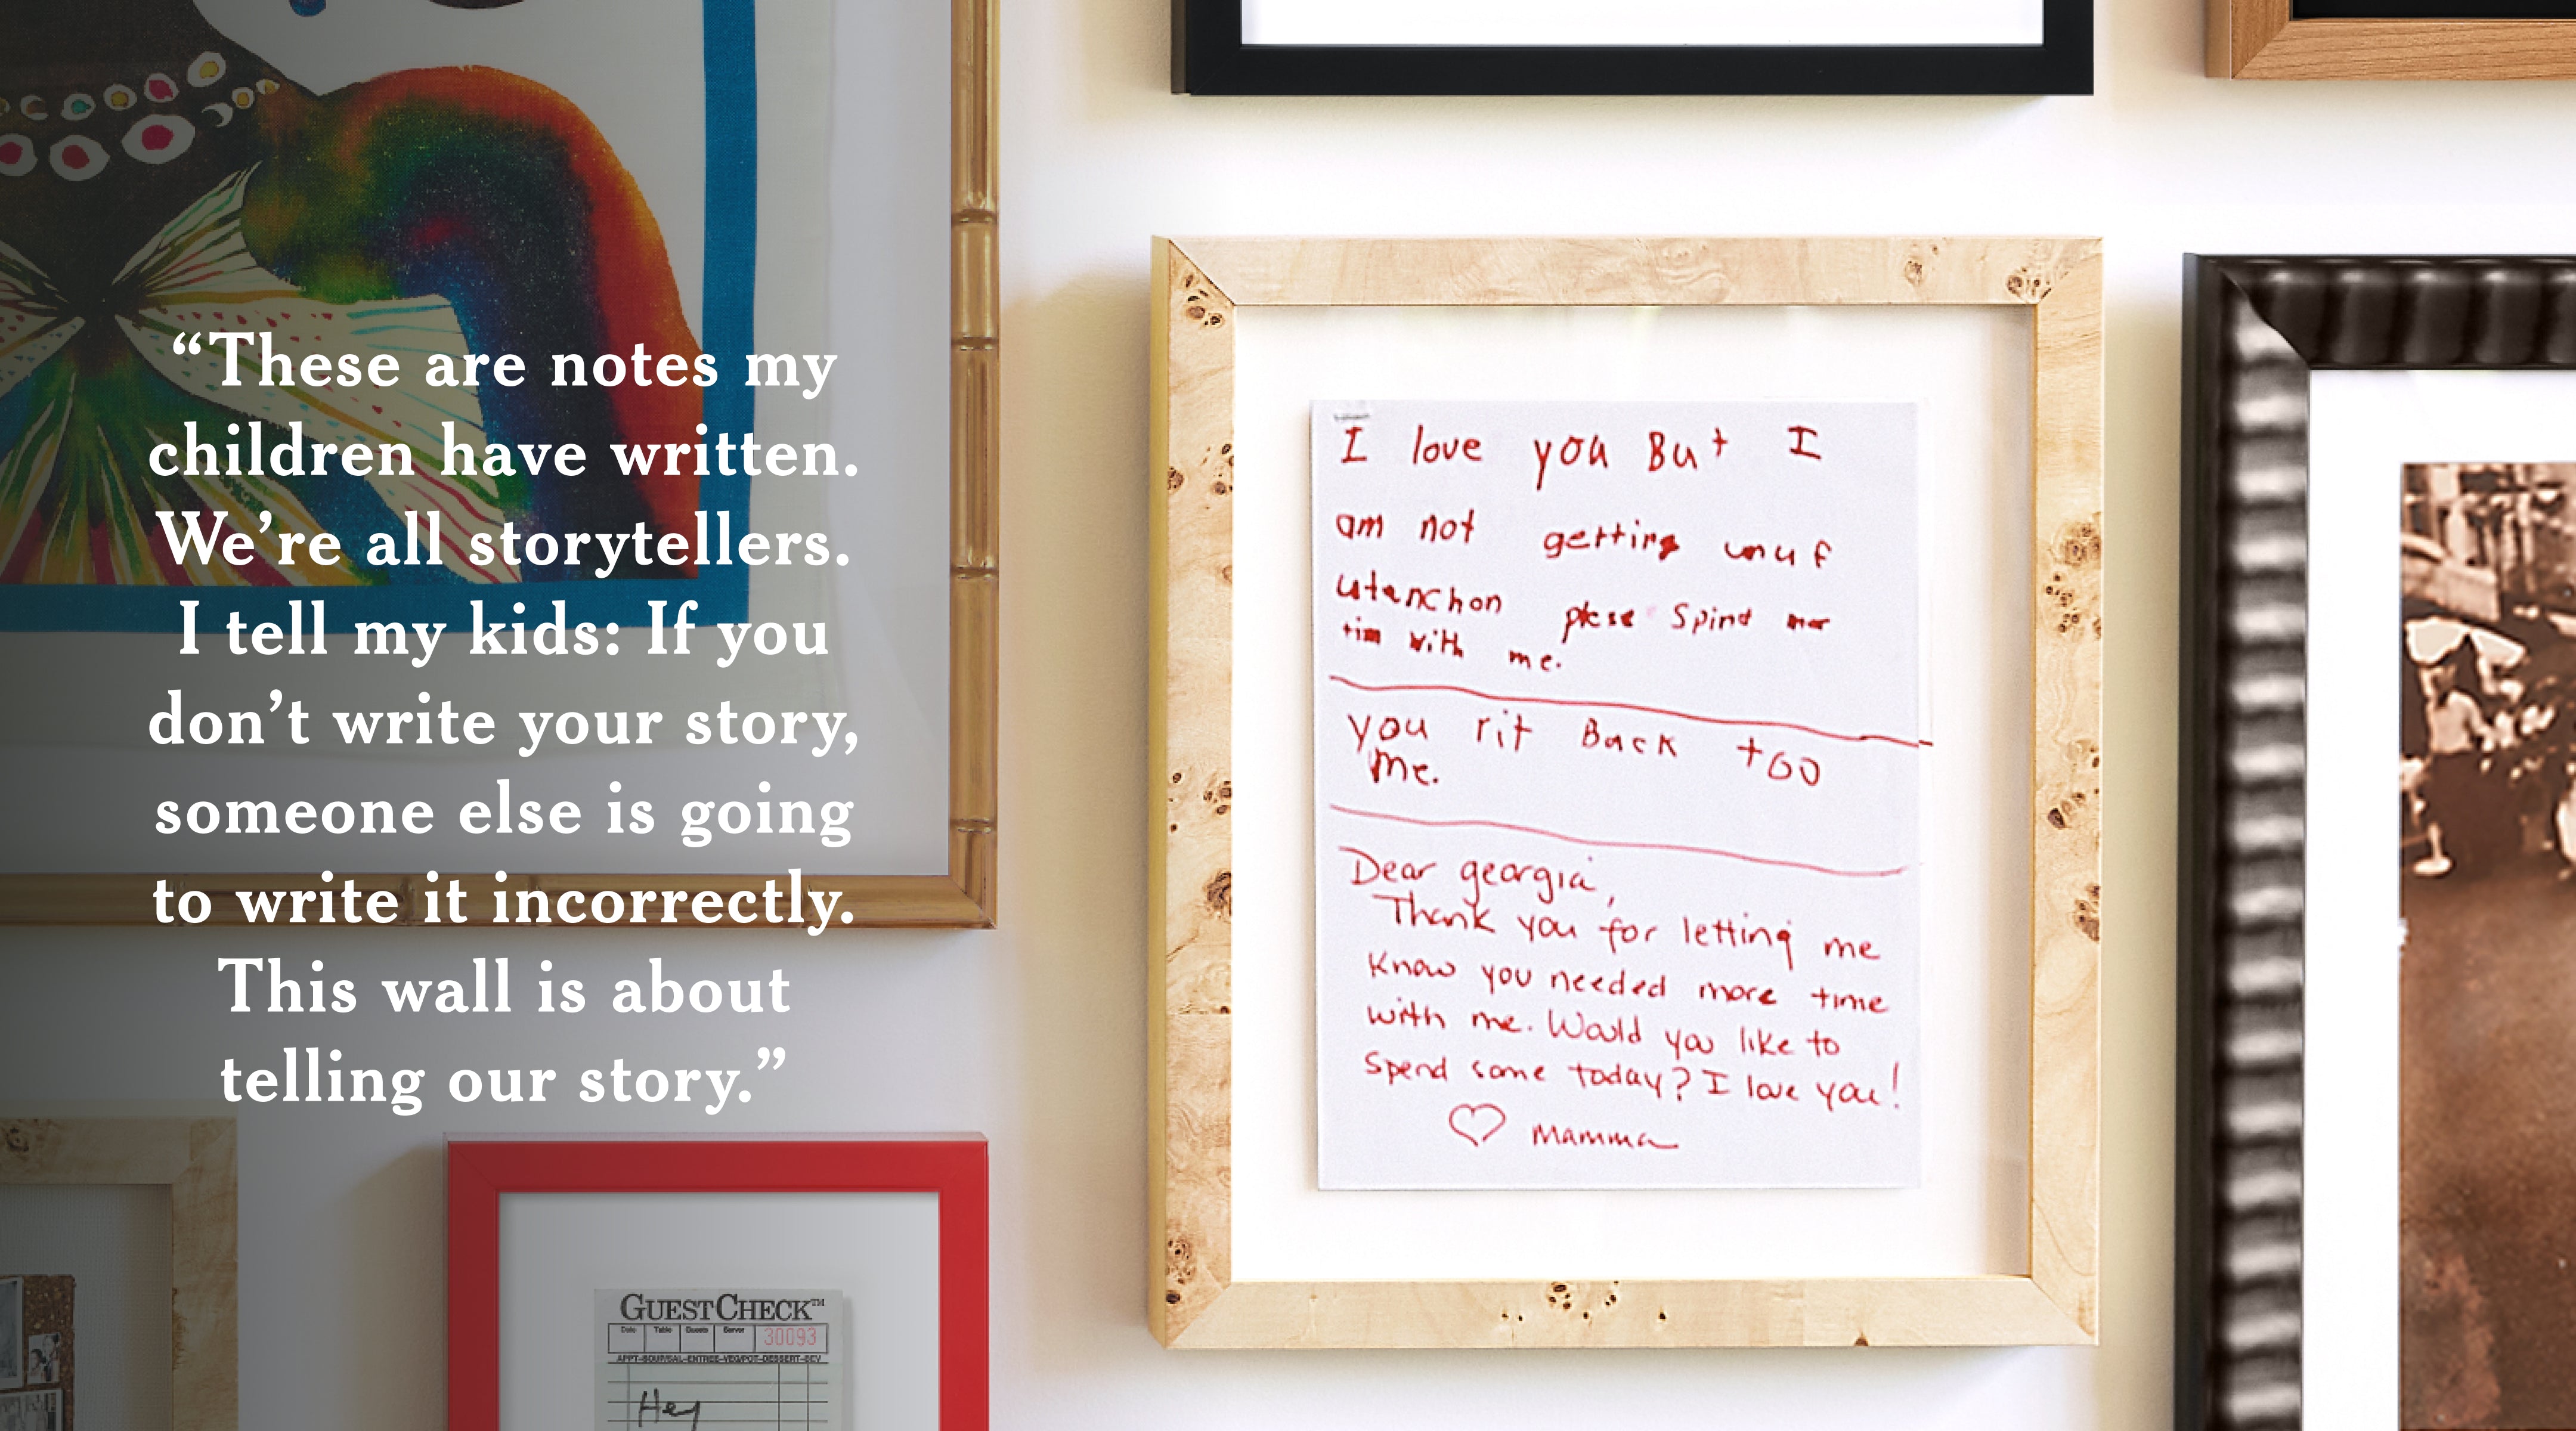 “These are notes my
children have written.
We’re all storytellers.
I tell my kids: If you
don’t write your story,
someone else is going
to write it incorrectly.
This wall is about
telling our story.”
I love you But I
am not getting unuf
utenchon plese Spind mor
tim with me.
you rit Back too
me.
Dear georgia,
Thank you for letting me
know you needed more time
with me. Would you like to
spend some today? I love you!
♡ Mamma
GUESTCHECK™
Date Table Guests Server 30093
APPT-SOUP/SAL-ENTREE-VEG/POT-DESSERT-BEV
Hey